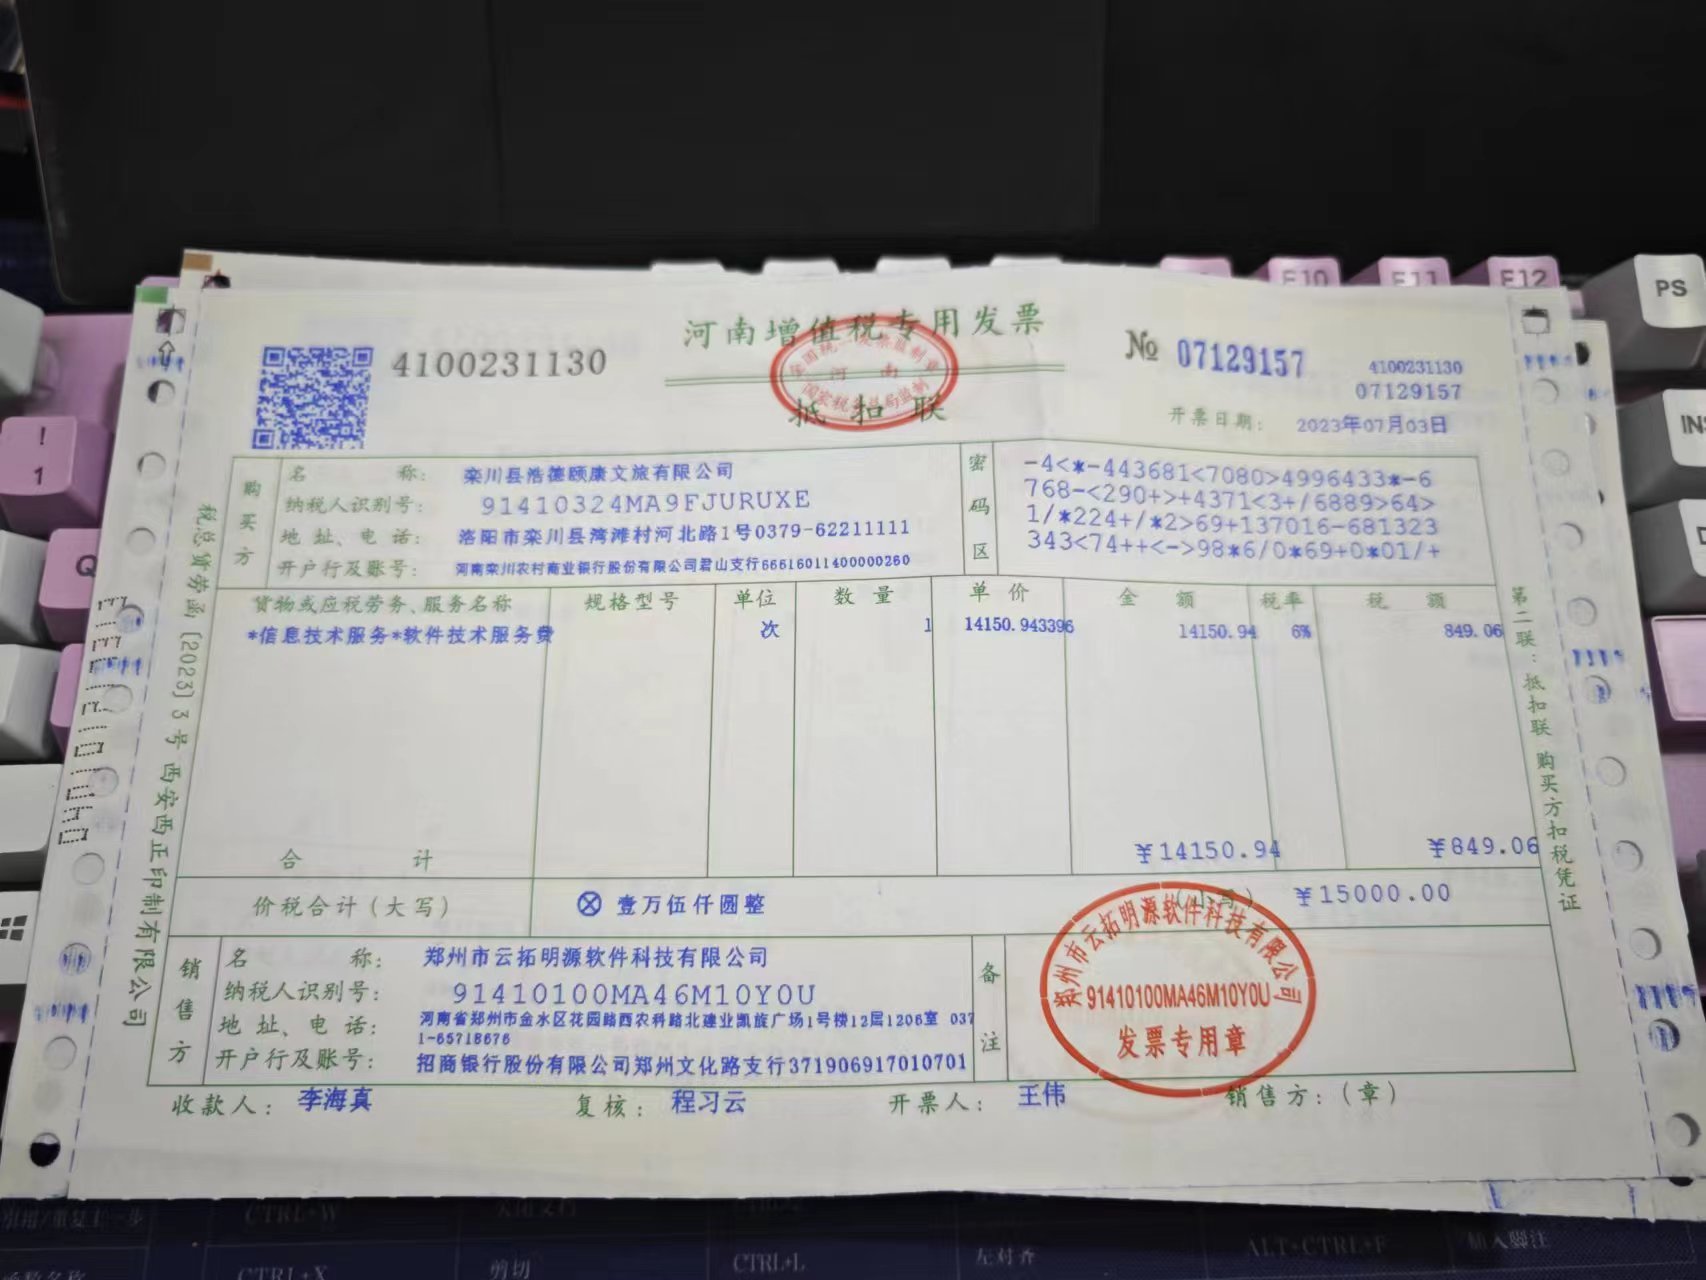 河南增值税专用发票
4100231130
№ 07129157
4100231130
07129157
抵扣联
开票日期： 2023年07月03日
全国统一发票监制章
河南
国家税务总局监制
购买方
名称： 栾川县浩德颐康文旅有限公司
纳税人识别号： 91410324MA9FJURUXE
地址、电话： 洛阳市栾川县湾滩村河北路1号0379-62211111
开户行及账号： 河南栾川农村商业银行股份有限公司君山支行66616011400000260
密码区
-4<*-443681<7080>4996433*-6
768-<290+>+4371<3+/6889>64>
1/*224+/*2>69+137016-681323
343<74++<->98*6/0*69+0*01/+
货物或应税劳务、服务名称 规格型号 单位 数量 单价 金额 税率 税额
*信息技术服务*软件技术服务费 次 1 14150.943396 14150.94 6% 849.06
合计 ¥14150.94 ¥849.06
价税合计（大写） ⊗ 壹万伍仟圆整 （小写） ¥15000.00
销售方
名称： 郑州市云拓明源软件科技有限公司
纳税人识别号： 91410100MA46M10Y0U
地址、电话： 河南省郑州市金水区花园路西农科路北建业凯旋广场1号楼12层1206室 037
1-65718676
开户行及账号： 招商银行股份有限公司郑州文化路支行371906917010701
备注
郑州市云拓明源软件科技有限公司
91410100MA46M10Y0U
发票专用章
收款人： 李海真 复核： 程习云 开票人： 王伟 销售方：（章）
税总货劳函〔2023〕3号 西安西正印制有限公司
第二联：抵扣联 购买方扣税凭证
F10
F11
F12
PS
INS
!
1
Q
D
CTRL+W
CTRL+X
剪切
CTRL+L
左对齐
ALT+CTRL+F
插入脚注